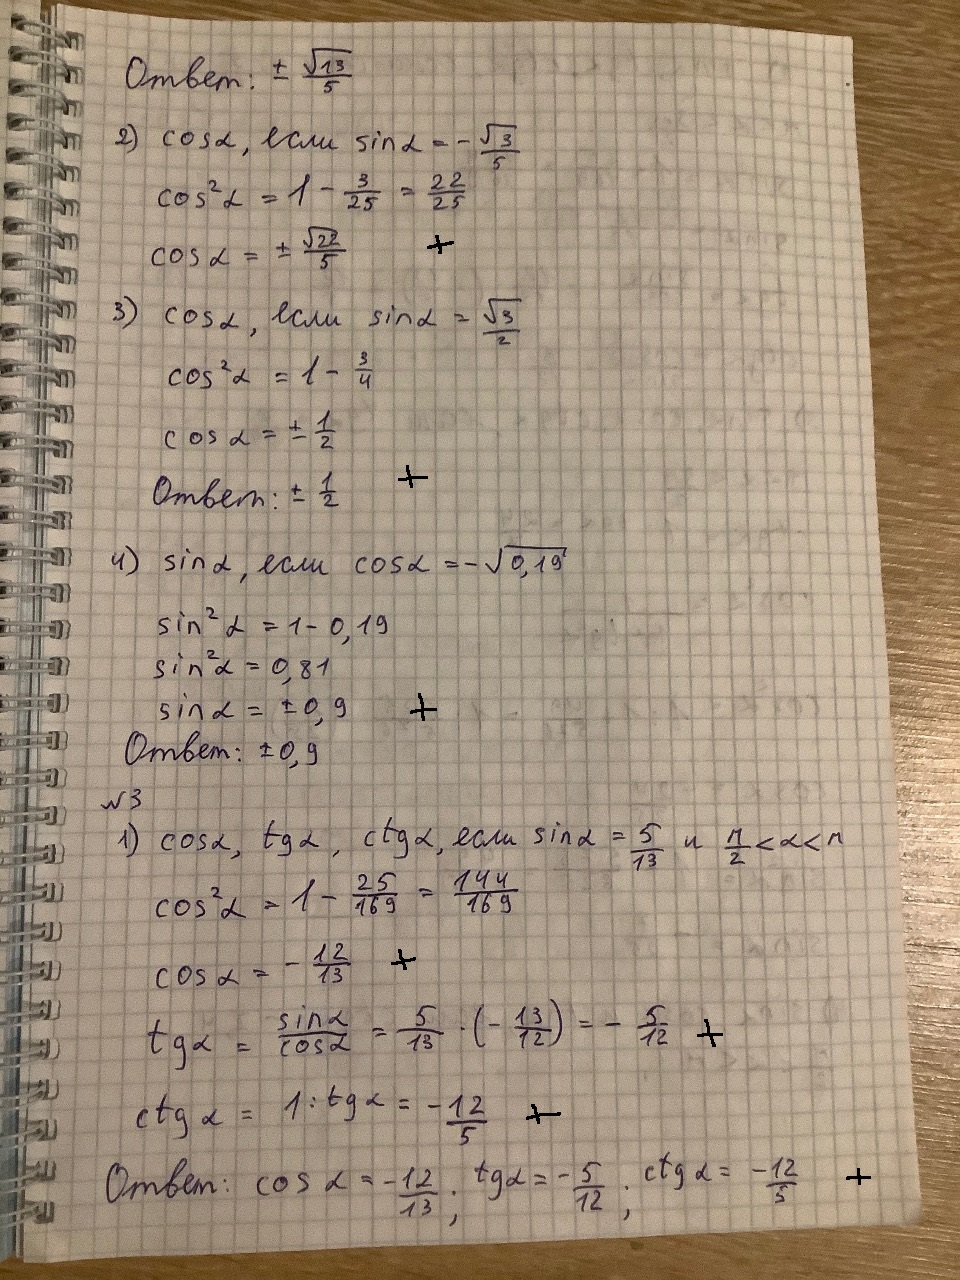 Ответ: ± √13/5
2) cosα, если sinα = -√3/5
cos²α = 1 - 3/25 = 22/25
cosα = ± √22/5 +
3) cosα, если sinα = √3/2
cos²α = 1 - 3/4
cosα = ± 1/2
Ответ: ± 1/2 +
4) sinα, если cosα = -√0,19
sin²α = 1 - 0,19
sin²α = 0,81
sinα = ±0,9 +
Ответ: ±0,9
№3
1) cosα, tgα, ctgα, если sinα = 5/13 и π/2 < α < π
cos²α = 1 - 25/169 = 144/169
cosα = - 12/13 +
tgα = sinα/cosα = 5/13 · (- 13/12) = - 5/12 +
ctgα = 1 : tgα = -12/5 +
Ответ: cosα = -12/13; tgα = -5/12; ctgα = -12/5 +